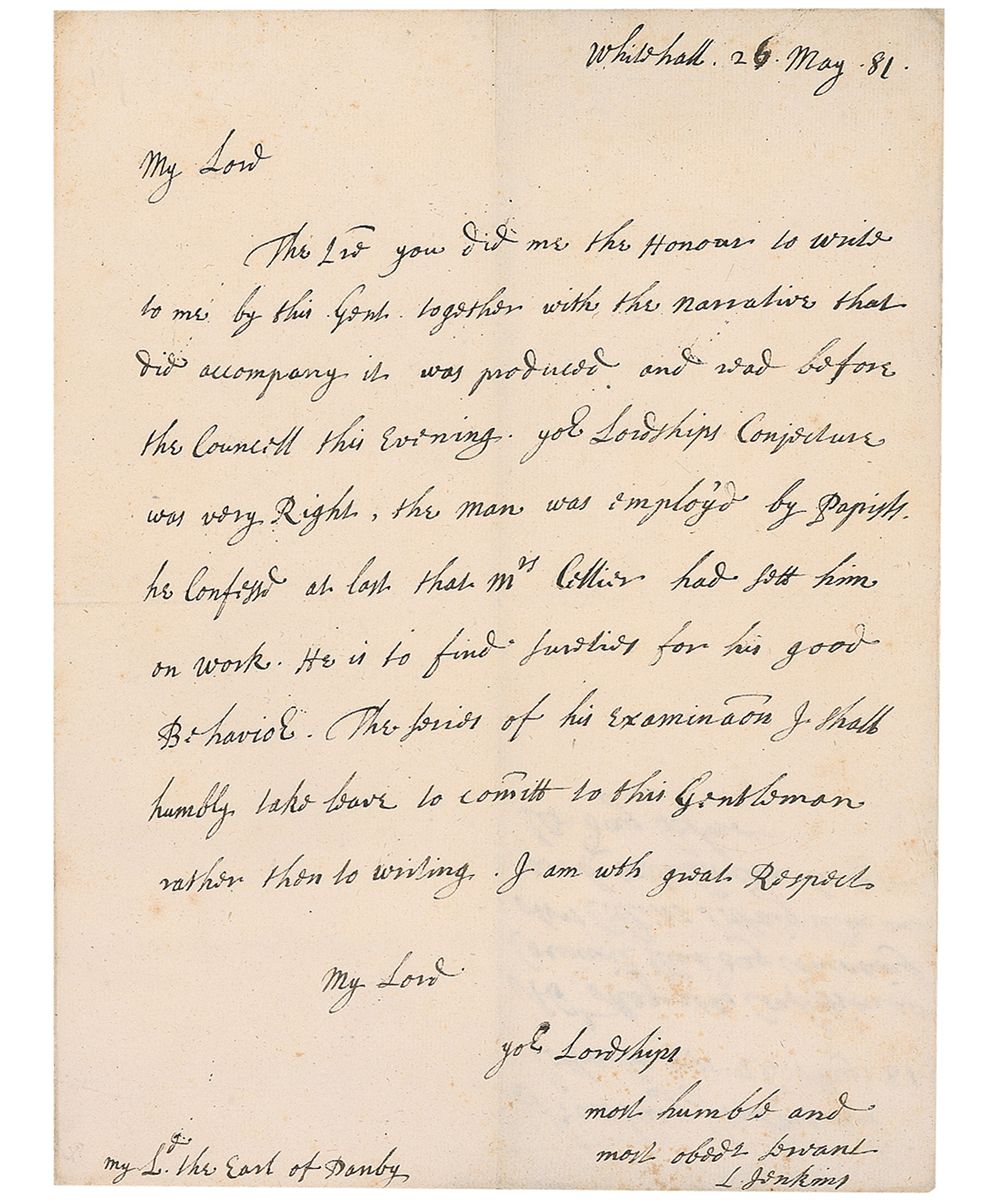 Whitehall. 26. May. 81.
My Lord
The Lr̃e you did me the Honour to write
to me by this Gent. together with the narrative that
did accompany it was produced and read before
the Councell this Evening. yor Lordships Conjecture
was very Right, the man was employ'd by Papists.
he Confessd at last that Mrs Cellier had sett him
on work. He is to find sureties for his good
Behavior. The series of his Examinac̃on I shall
humbly take leave to com̃itt to this Gentleman
rather then to writing. I am wth great Respect
My Lord
yor Lordships
most humble and
most obedt servant
L. Jenkins
my Ld. the Earl of Danby